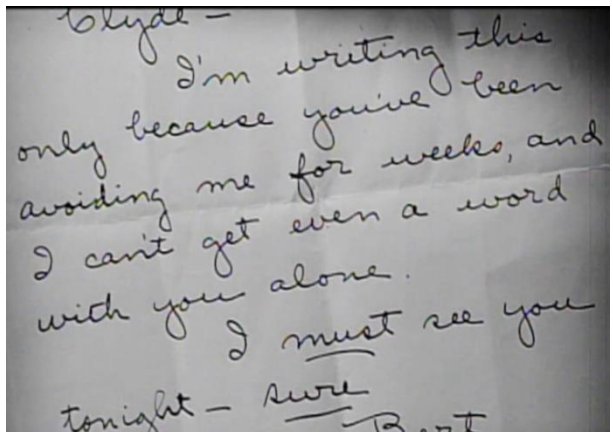 Clyde –
I'm writing this
only because you've been
avoiding me for weeks, and
I can't get even a word
with you alone.
I must see you
tonight – sure
Bert